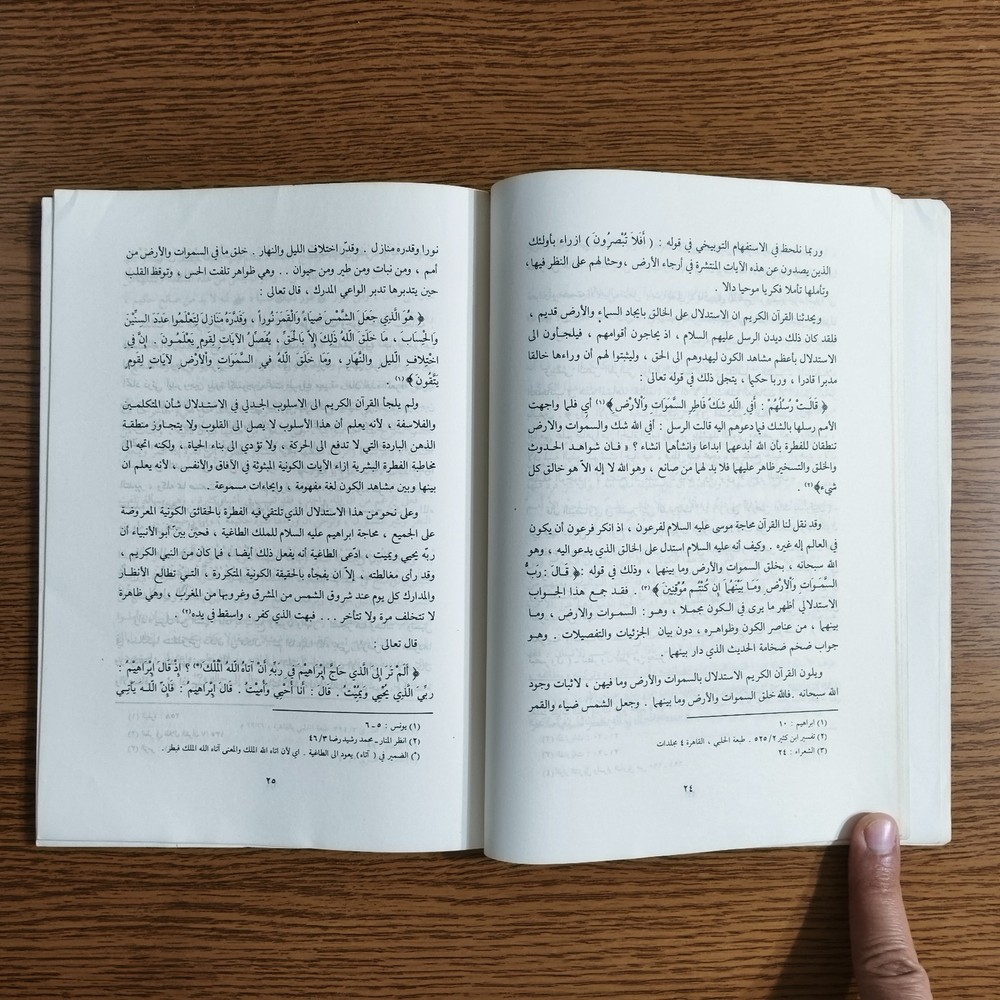 وربما نلحظ في الاستفهام التوبيخي في قوله : ( أَفَلَا تُبْصِرُونَ ) ازراء بأولئك
الذين يصدون عن هذه الآيات المنتشرة في أرجاء الأرض ، وحثا لهم على النظر فيها ،
وتأملها تأملا فكريا موحيا دالا .
ويحدثنا القرآن الكريم ان الاستدلال على الخالق بايجاد السماء والأرض قديم ،
فلقد كان ذلك ديدن الرسل عليهم السلام ، اذ يحاجون أقوامهم ، فيلجأون الى
الاستدلال بأعظم مشاهد الكون ليهدوهم الى الحق ، وليثبتوا لهم أن وراءها خالقا
مدبرا قادرا ، وربا حكيما ، يتجلى ذلك في قوله تعالى :
﴿ قَالَتْ رُسُلُهُمْ : أَفِي اللهِ شَكٌّ فَاطِرِ السَّمَوَاتِ وَالْأَرْضِ ﴾(١) أي فلما واجهت
الأمم رسلها بالشك فيما دعوهم اليه قالت الرسل : أفي الله شك والسموات والارض
تنطقان للفطرة بأن الله أبدعهما ابداعا وانشأهما انشاء ؟ « فان شواهد الحدوث
والخلق والتسخير ظاهر عليهما فلا بد لهما من صانع ، وهو الله لا إله الاّ هو خالق كل
شيء﴾(٢) .
وقد نقل لنا القرآن محاجة موسى عليه السلام لفرعون ، اذ انكر فرعون أن يكون
في العالم إله غيره . وكيف أنه عليه السلام استدل على الخالق الذي يدعو اليه ، وهو
الله سبحانه ، بخلق السموات والأرض وما بينهما ، وذلك في قوله :﴿ قَالَ : رَبُّ
السَّمَوَاتِ وَالْأَرْضِ وَمَا بَيْنَهُمَا إِن كُنْتُمْ مُوْقِنِينَ ﴾(٣) . فقد جمع هذا الجواب
الاستدلالي أظهر ما يرى في الكون مجملا ، وهو : السموات والارض ، وما
بينهما ، من عناصر الكون وظواهره ، دون بيان الجزئيات والتفصيلات . وهو
جواب ضخم ضخامة الحديث الذي دار بينهما .
ويلون القرآن الكريم الاستدلال بالسموات والارض وما فيهن ، لاثبات وجود
الله سبحانه . فالله خلق السموات والأرض وما بينهما . وجعل الشمس ضياء والقمر
(١) ابراهيم : ١٠
(٢) تفسير ابن كثير ٢/ ٥٢٥ . طبعة الحلبي ، القاهرة ٤ مجلدات
(٣) الشعراء : ٢٤
٢٤
نورا وقدره منازل . وقدّر اختلاف الليل والنهار . خلق ما في السموات والأرض من
أمم ، ومن نبات ومن طير ومن حيوان . . وهي ظواهر تلفت الحس ، وتوقظ القلب
حين يتدبرها تدبر الواعي المدرك ، قال تعالى :
﴿ هُوَ الَّذِي جَعَلَ الشَّمْسَ ضِيَاءً وَالْقَمَرَ نُوراً ، وَقَدَّرَهُ مَنَازِلَ لِتَعْلَمُوا عَدَدَ السِّنِيْنَ
وَالْحِسَابَ ، مَا خَلَقَ اللهُ ذَلِكَ إِلاَّ بِالْحَقِّ ، يُفَصِّلُ الآيَاتِ لِقَوْمٍ يَعْلَمُونَ . إِنَّ فِي
اخْتِلَافِ اللَّيلِ وَالنَّهَارِ ، وَمَا خَلَقَ اللهُ فِي السَّمَوَاتِ وَالأَرْضِ لآيَاتٍ لِقَومٍ
يَتَّقُونَ ﴾ (١) .
ولم يلجأ القرآن الكريم الى الاسلوب الجدلي في الاستدلال شأن المتكلمين
والفلاسفة ، لأنه يعلم أن هذا الأسلوب لا يصل الى القلوب ولا يتجاوز منطقة
الذهن الباردة التي لا تدفع الى الحركة ، ولا تؤدي الى بناء الحياة ، ولكنه اتجه الى
مخاطبة الفطرة البشرية ازاء الآيات الكونية المبثوثة في الآفاق والأنفس ، لأنه يعلم ان
بينها وبين مشاهد الكون لغة مفهومة ، وايحاءات مسموعة .
وعلى نحو من هذا الاستدلال الذي تلتقي فيه الفطرة بالحقائق الكونية المعروضة
على الجميع ، محاجة ابراهيم عليه السلام للملك الطاغية ، فحين بيّن أبو الأنبياء أن
ربّه يحيي ويميت ، ادّعى الطاغية أنه يفعل ذلك أيضا ، فما كان من النبي الكريم ،
وقد رأى مغالطته ، إلاّ ان يفجأه بالحقيقة الكونية المتكررة ، التي تطالع الأنظار
والمدارك كل يوم عند شروق الشمس من المشرق وغروبها من المغرب ، وهي ظاهرة
لا تتخلف مرة ولا تتأخر . . . فبهت الذي كفر ، واسقط في يده(٢) .
قال تعالى :
﴿ أَلَمْ تَرَ إِلَى الَّذِي حَاجَّ إِبْرَاهِيْمَ فِي رَبِّهِ أَنْ آتَاهُ اللهُ الْمُلْكَ(*) ؟ إِذْ قَالَ إِبْرَاهِيْمُ :
رَبِّيَ الَّذِي يُحْيِي وَيُمِيْتُ . قَالَ : أَنَا أُحْيِي وَأُمِيْتُ . قَالَ إِبْرَاهِيْمُ : فَإِنَّ اللهَ يَأْتِي
(١) يونس : ٥ - ٦
(٢) انظر المنار - محمد رشيد رضا ٣/ ٤٦
(*) الضمير في ( آتاه ) يعود الى الطاغية . اي لأن اتاه الله الملك والمعنى آتاه الله الملك فبطر .
٢٥